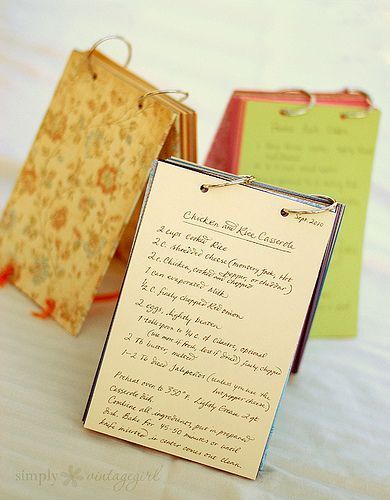 Sept. 2010
Chicken and Rice Casserole
2 cups cooked Rice
2 c. shredded cheese (monterey jack, Hot
pepper, or cheddar)
2 c. Chicken, cooked and chopped
1 can evaporated Milk
1/2 c. finely chopped Red onion
2 eggs, lightly beaten
1 tablespoon to 1/4 c. of Cilantro, optional
(use more if fresh, less if dried) finely chopped
2 Tb butter, melted
1-2 Tb diced Jalapeños (unless you use the
hot pepper cheese)
Preheat oven to 350°F. Lightly Grease 2 qt
Casserole dish.
Combine all ingredients, put in prepared
dish. Bake for 45-50 minutes or until
knife inserted in center comes out clean.
simply vintagegirl